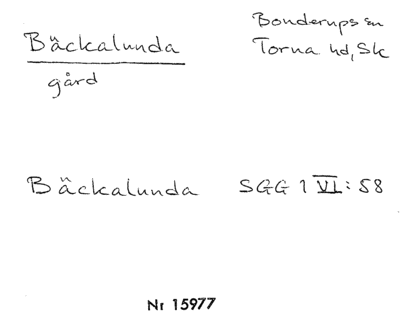 Bäckalunda
gård
Bonderups sn
Torna hd, Sk
Bäckalunda SGG 1 VI: 58
Nr 15977